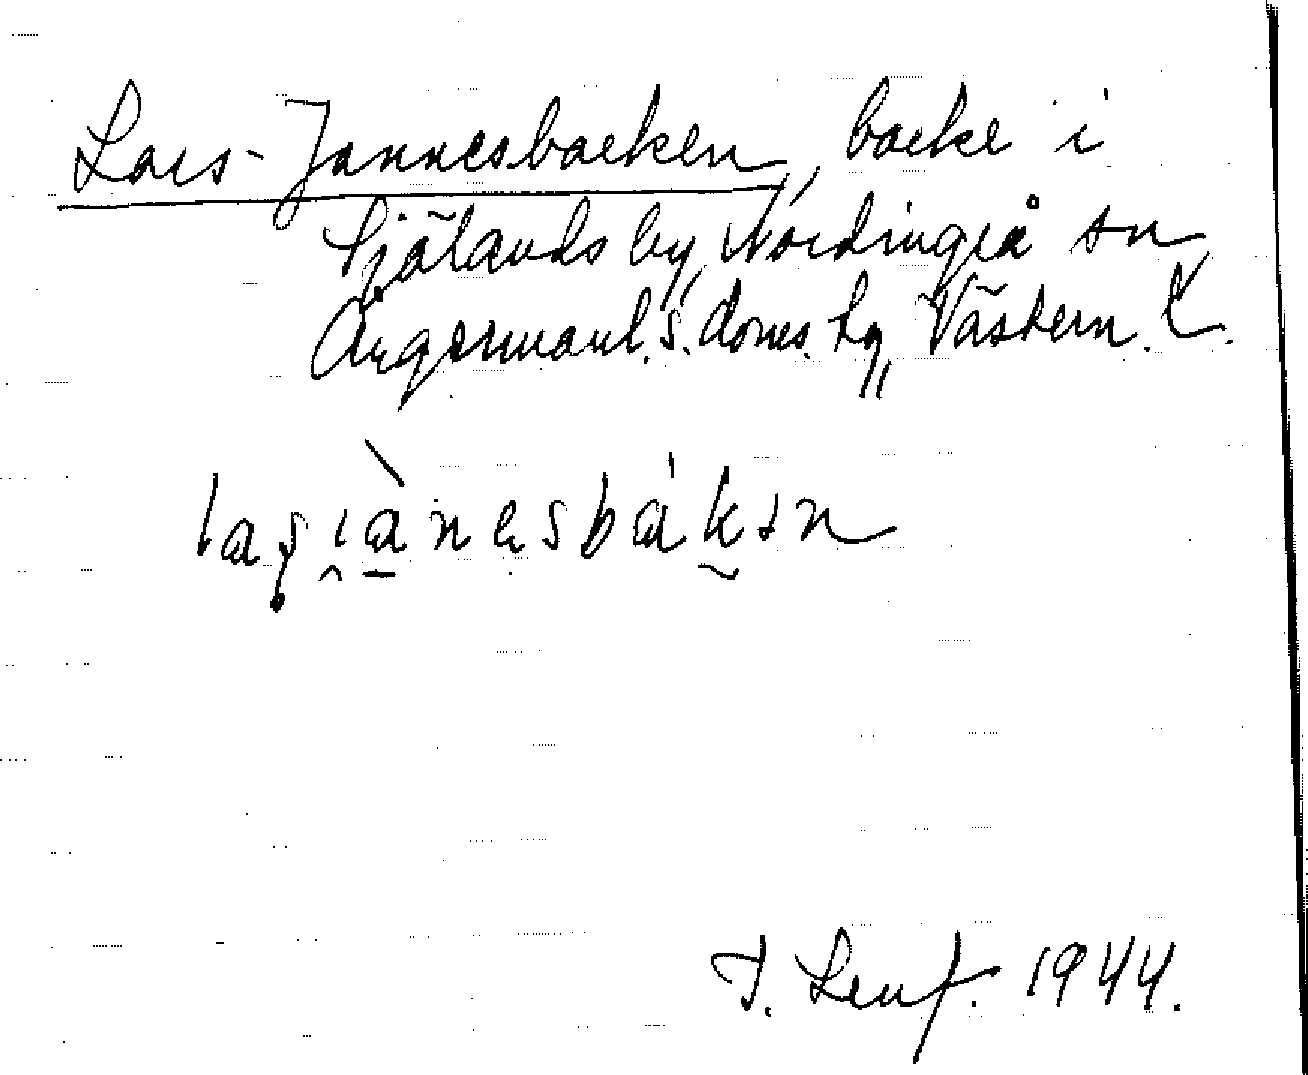 Lars-Jannesbacken, backe i
Själands by, Nordingrå sn,
Ångermanl. s. doms. tg, Västern. l.
J. Lenf. 1944.